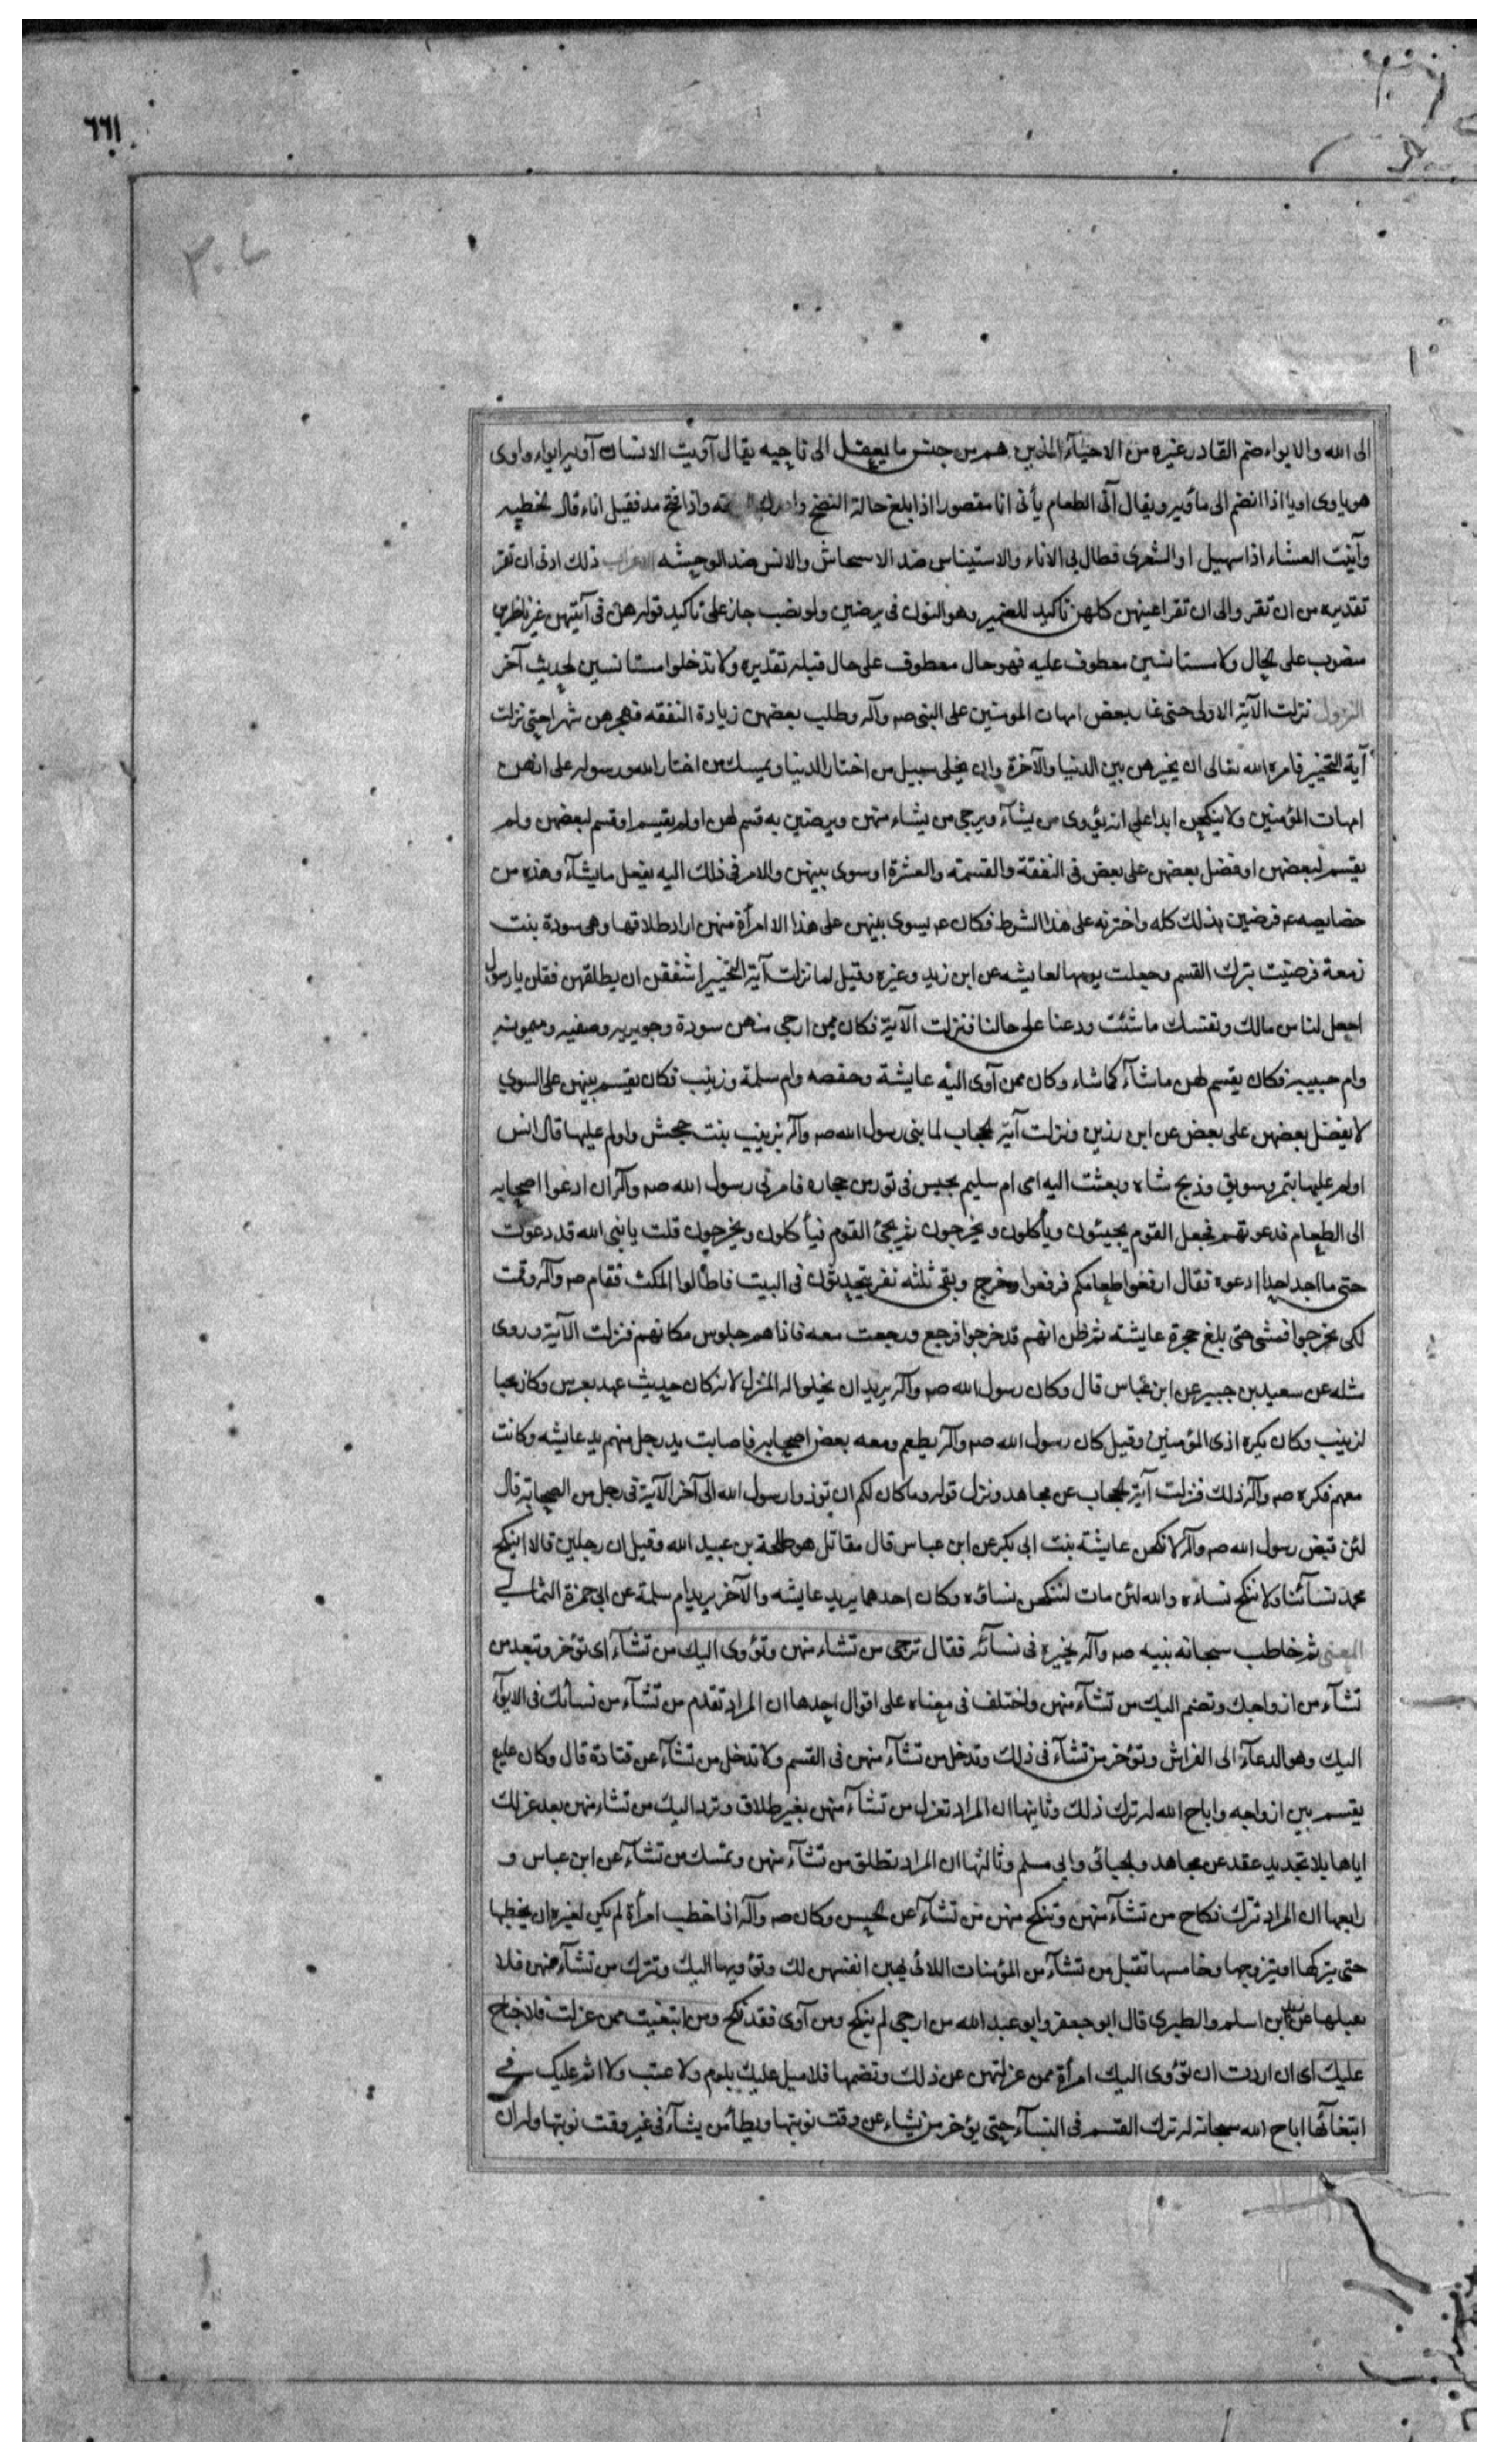 ٦٦١
٣٠٧
الى الله والايواء ضم القادر غيره من الاحياء الذين هم من جنس ما يعقل الى ناحيه يقال آويت الانسان آويه ايواء واوى
هو ياوى اويا اذا انضم الى ماويه ويقال آنى الطعام يأنى انا مقصورا اذا بلغ حالة النضج وادرك وقته واذا فتح مد فقيل اناء قال الحطيه
وآنيت العشاء اذا سهيل او الشعرى فطال بى الاناء والاستيناس ضد الاسيحاش والانس ضد الوحيشه الاعراب ذلك ادنى ان تقر
تقديره من ان تقر والى ان تقر اعينهن كلهن تاكيد للضمير وهو النون فى يرضين ولو نصب جاز على تاكيد قوله هن فى آتيتهن غير ناظرين
منصوب على الحال ولا مستانسين معطوف عليه فهو حال معطوف على حال قبله تقديره ولا تدخلوا مستانسين لحديث آخر
النزول نزلت الآية الاولى حتى غار بعض امهات المومنين على النبى صه وآله وطلب بعضهن زيادة النفقه فهجرهن شهرا حتى نزلت
آية التخيير فامره الله تعالى ان يخيرهن بين الدنيا والآخرة وان يخلى سبيل من اختار الدنيا ويمسك من اختار الله ورسوله على انهن
امهات المؤمنين ولا ينكحن ابدا على انه يؤوى من يشآء ويرجى من يشاء منهن ويرضين به قسم لهن او لم يقسم او قسم لبعضهن ولم
يقسم لبعضهن او فضل بعضهن على بعض فى النفقة والقسمة والعشرة او سوى بينهن والامر فى ذلك اليه يفعل ما يشآء وهذه من
خصايصه عم فرضين بذلك كله واخترنه على هذا الشرط فكان عم يسوى بينهن على هذا الا امرأة منهن اراد طلاقها وهى سودة بنت
زمعة فرضيت بترك القسم وجعلت يومها لعايشه عن ابن زيد وغيره وقيل لما نزلت آية التخيير اشفقن ان يطلقهن فقلن يا رسول
اجعل لنا من مالك ونفسك ما شئت ودعنا على حالنا فنزلت الآية فكان ممن ارجى منهن سودة وجويريه وصفيه وميمونه
وام حبيبه فكان يقسم لهن ماشآء كما شاء وكان ممن آوى اليه عايشة وحفصه وام سلمة وزينب فكان يقسم بينهن على السوى
لا يفضل بعضهن على بعض عن ابن رزين ونزلت آية الحجاب لما بنى رسول الله صه وآله بزينب بنت جحش واولم عليها قال انس
اولم عليها بتمر وسويق وذبح شاه وبعثت اليه امى ام سليم بحيس فى تور من حجاره فامرنى رسول الله صه وآله ان ادعوا اصحابه
الى الطعام فدعوتهم فجعل القوم يجيئون ويأكلون ويخرجون ثم يجئ القوم فيأكلون ويخرجون قلت يا نبى الله قد دعوت
حتى ما اجد احدا ادعوه فقال ارفعوا طعامكم فرفعوا وخرج وبقى ثلثه نفر يتحدثون فى البيت فاطالوا المكث فقام صه وآله وقمت
لكى يخرجوا فمشى حتى بلغ حجرة عايشه ثم ظن انهم قد خرجوا فرجع ورجعت معه فاذا هم جلوس مكانهم فنزلت الآية وروى
مثله عن سعيد بن جبير عن ابن عباس قال وكان رسول الله صه وآله يريد ان يخلوا له المنزل لانه كان حديث عهد بعرس وكان محبا
لزينب وكان يكره اذى المؤمنين وقيل كان رسول الله صه وآله يطعم ومعه بعض اصحابه فاصابت يد رجل منهم يد عايشه وكانت
معهم فكره صه وآله ذلك فنزلت آية الحجاب عن مجاهد ونزل قوله وما كان لكم ان توذوا رسول الله الى آخر الآية فى رجل من الصحابة قال
لئن قبض رسول الله صه وآله لانكحن عايشة بنت ابى بكر عن ابن عباس قال مقاتل هو طلحة بن عبيد الله وقيل ان رجلين قالا اينكح
محمد نسآئنا ولا ننكح نساءه والله لئن مات لننكحن نساؤه وكان احدهما يريد عايشه والآخر يريد ام سلمة عن ابى حمزة الثمالى
المعنى ثم خاطب سبحانه نبيه صه وآله يخيره فى نسآئه فقال ترجى من تشاء منهن وتؤوى اليك من تشآء اى تؤخر وتبعد من
تشآء من ازواجك وتضم اليك من تشآء منهن واختلف فى معناه على اقوال احدها ان المراد تقدم من تشآء من نسائك فى الايوآء
اليك وهو الدعآء الى الفراش وتؤخر من تشآء فى ذلك وتدخل من تشآء منهن فى القسم ولا تدخل من تشآء عن قتادة قال وكان عليع
يقسم بين ازواجه واباح الله له ترك ذلك وثانيها ان المراد تعزل من تشآء منهن بغير طلاق وترد اليك من تشاء منهن بعد عزلك
اياها بلا تجديد عقد عن مجاهد والجبائى وابى مسلم وثالثها ان المراد تطلق من تشآء منهن وتمسك من تشآء عن ابن عباس و
رابعها ان المراد ترك نكاح من تشآء منهن وتنكح منهن من تشآء عن الحسن وكان صه وآله اذا خطب امرأة لم يكن لغيره ان يخطبها
حتى يتركها او يتزوجها وخامسها تقبل من تشآء من المؤمنات اللائى يهبن انفسهن لك وتؤويها اليك وتترك من تشآء منهن فلا
تقبلها عن ابن اسلم والطبرى قال ابو جعفر وابو عبد الله من ارجى لم ينكح ومن آوى فقد نكح ومن ابتغيت ممن عزلت فلا جناح
عليك اى ان اردت ان تؤوى اليك امرأة ممن عزلتهن عن ذلك وتضمها فلا سبيل عليك بلوم ولا عتب ولا اثم عليك فى
ابتغآئها اباح الله سبحانه له ترك القسم فى النسآء حتى يؤخر من يشاء عن وقت نوبتها ويطأ من يشآء فى غير وقت نوبتها وله ان